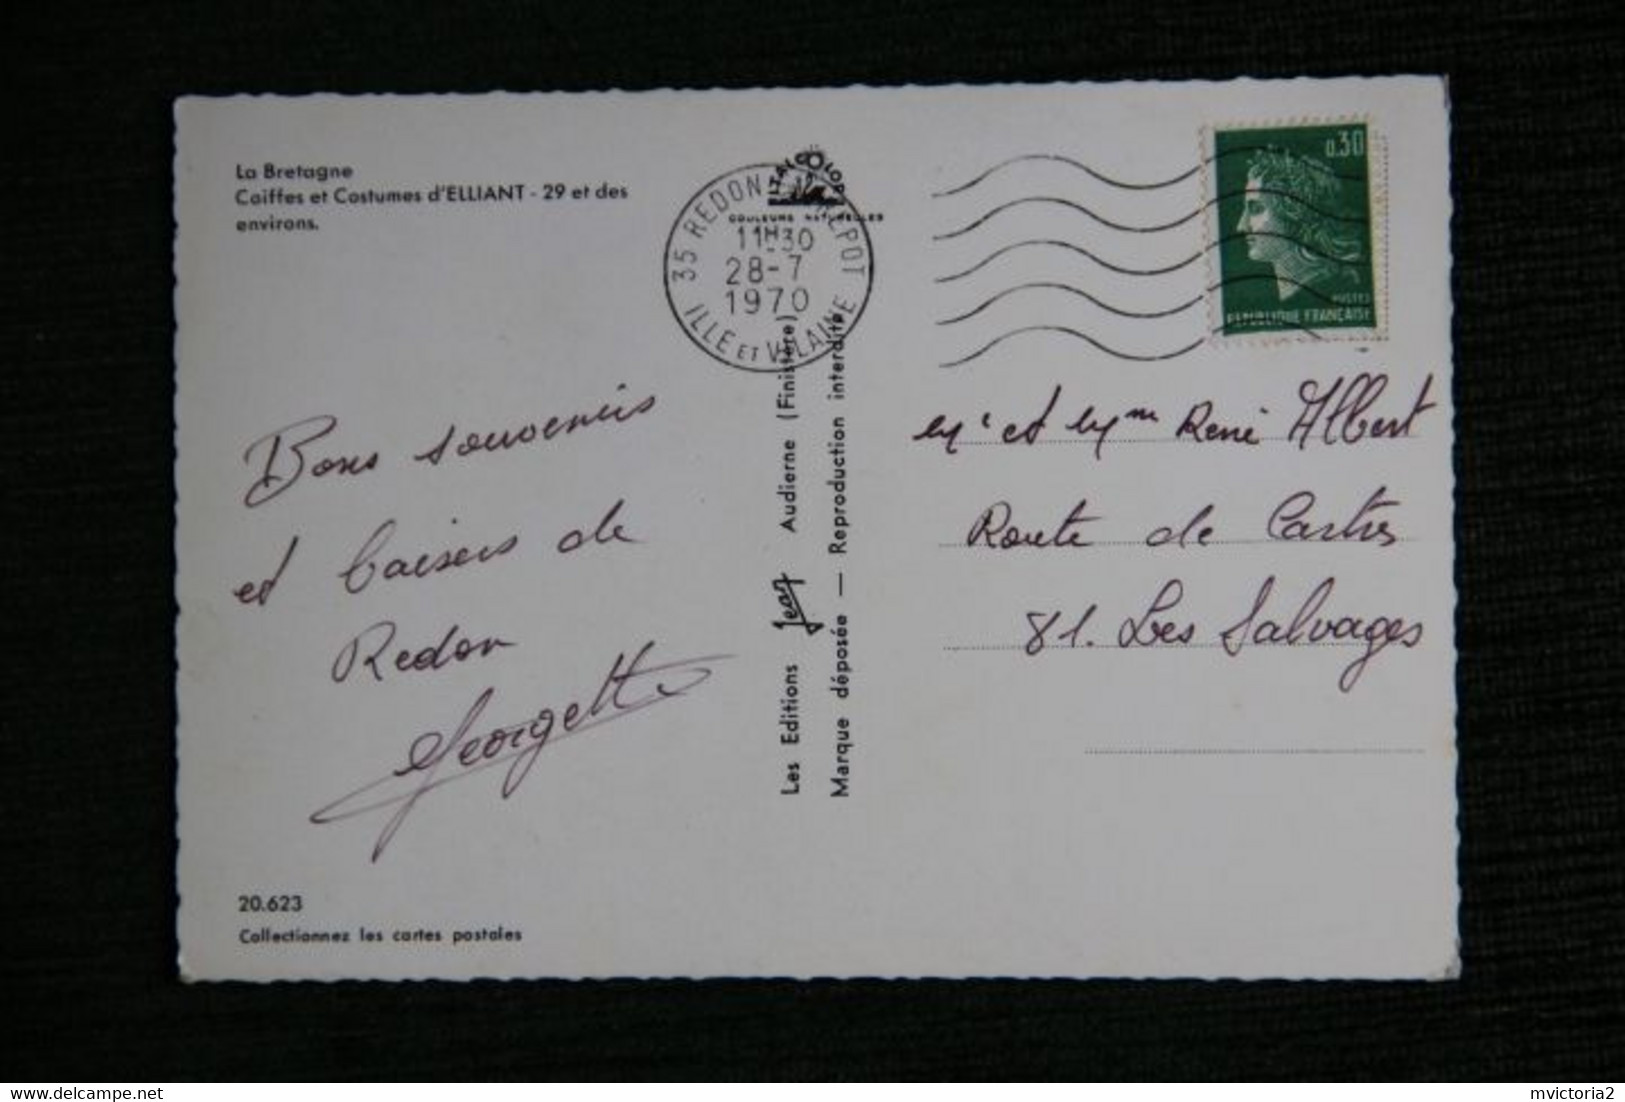 La Bretagne
Coiffes et Costumes d'ELLIANT - 29 et des
environs.
ITALCOLOR
COULEURS NATURELLES
35 REDON DEPOT
11H30
28-7
1970
ILLE ET VILAINE
0,30
POSTES
REPUBLIQUE FRANÇAISE
Bons souvenirs
et baisers de
Redon
Georgette
Les Editions Jean Audierne (Finistère)
Marque déposée — Reproduction interdite
Mr et Mme René Albert
Route de Castres
81. Les Salvages
20.623
Collectionnez les cartes postales
delcampe.net
mvictoria2